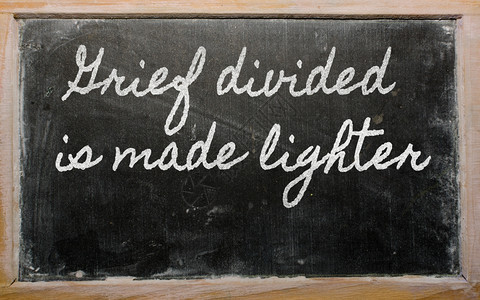 Grief divided
is made lighter